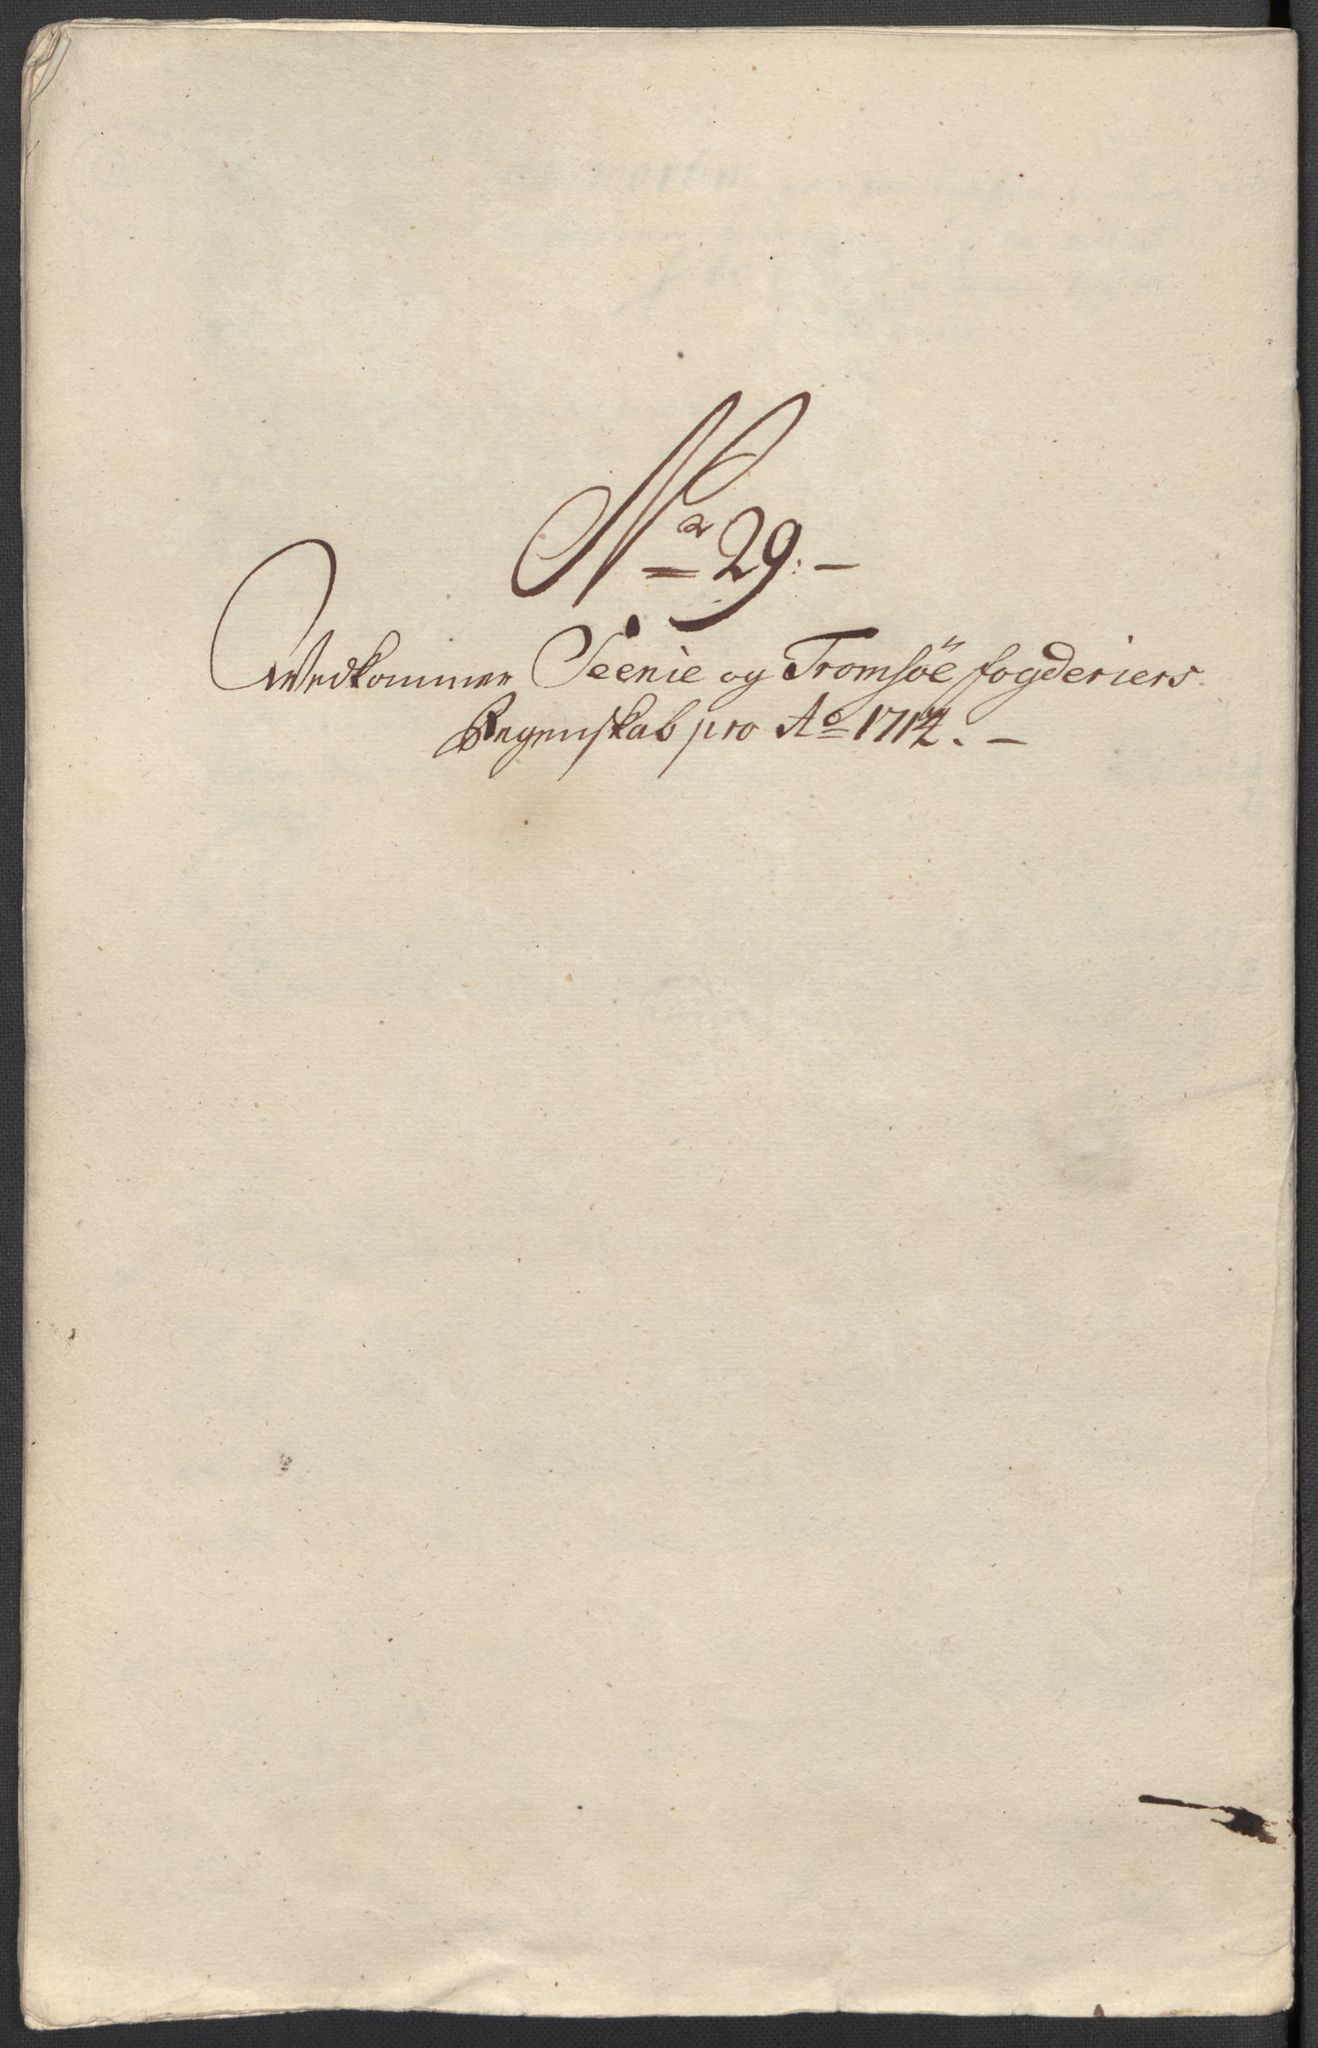 No 29. –
Vedkommer Seenie og Tromsöe fogderiers
Regenskab pro Ao 1714. –